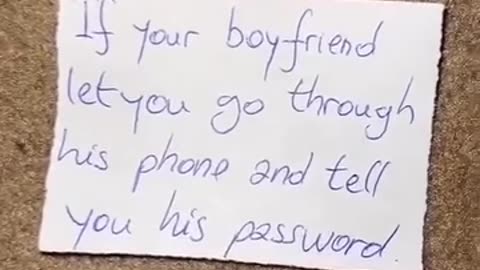 If your boyfriend
let you go through
his phone and tell
you his password.